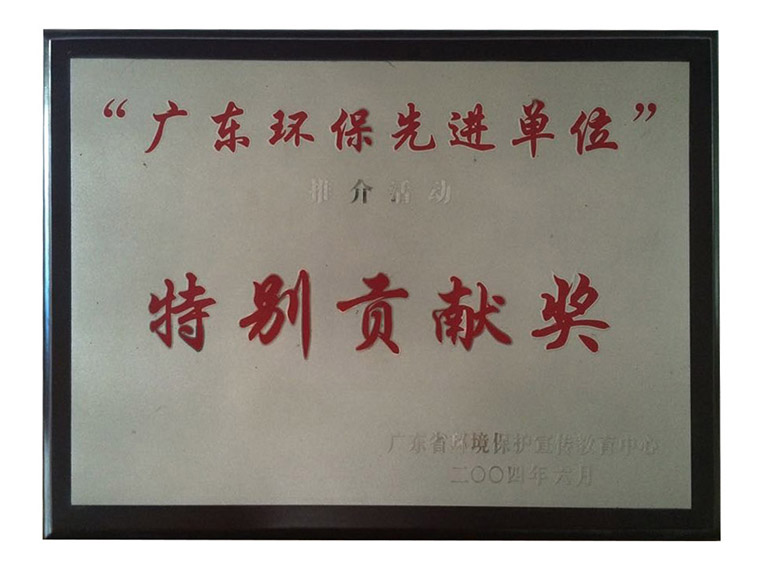 “广东环保先进单位”
推介活动
特别贡献奖
广东省环境保护宣传教育中心
二〇〇四年六月